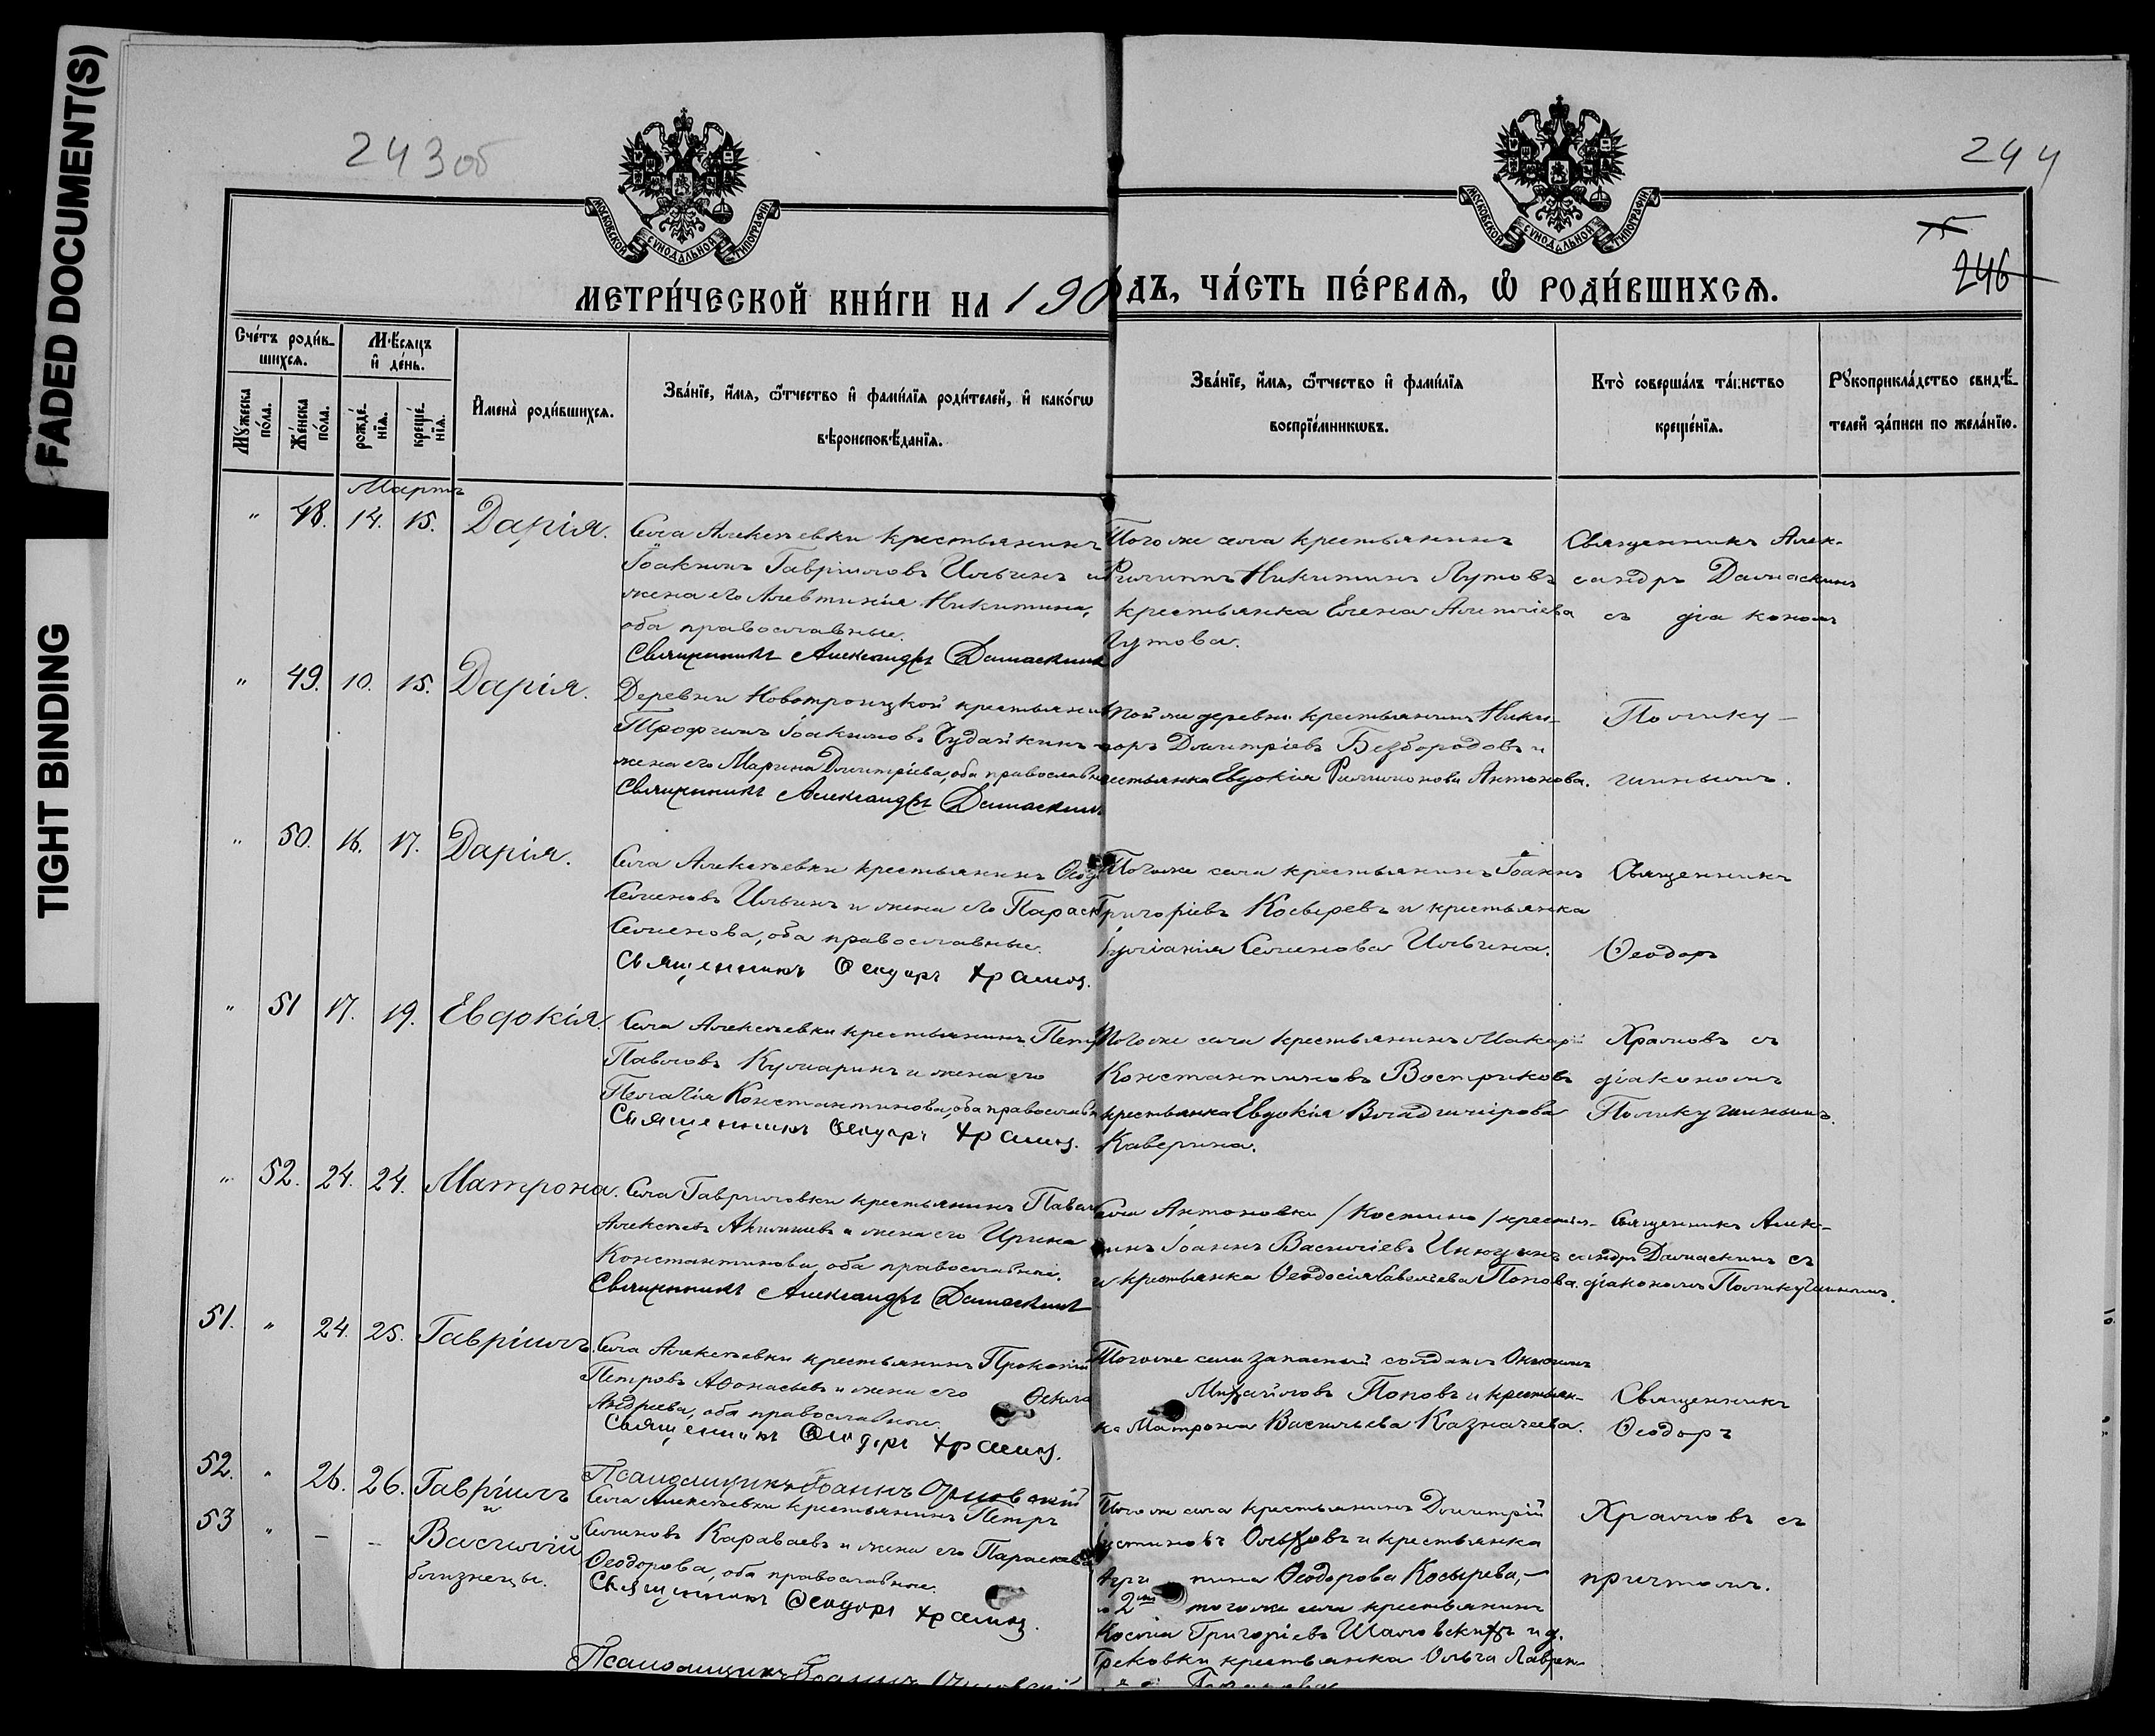 FADED DOCUMENT(S)
TIGHT BINDING
243об
244
75
246
МОСКОВСКОЙ СѴНОДАЛЬНОЙ ТИПОГРАФІИ
МОСКОВСКОЙ СѴНОДАЛЬНОЙ ТИПОГРАФІИ
МЕТРИ́ЧЕСКОЙ КНИ́ГИ НА 190 ДЪ, ЧА́СТЬ ПЕ́РВАЯ, Ѡ РОДИ́ВШИХСЯ.
Сче́тъ роди́в-
шихся.
Мѣ́сяцъ
и де́нь.
Му́жеска по́ла.
Же́нска по́ла.
рожде́-нїя.
креще́-нїя.
Имена̀ роди́вшихся.
Зва́нїе, и́мя, ѻ́тчество и фами́лїя роди́телей, и како́гѡ
вѣроисповѣ́данїя.
Зва́нїе, и́мя, ѻ́тчество и фами́лїя
воспрїе́мникѡвъ.
Кто̀ соверша́лъ та́инство
креще́нїя.
Рꙋкоприкла́дство свидѣ́-
телей за́писи по жела́нїю.
Мартъ
" 48. 14. 15. Дарія.
Села Алексѣевки крестьянинъ
Іоакимъ Гавріиловъ Ильинъ и
жена его Алевтина Никитина,
оба православные.
Священникъ Александръ Дамаскинъ
Того же села крестьянинъ
Филиппъ Никитинъ Лутовъ
крестьянка Елена Алексіева
Лутова.
Священникъ Алек-
сандръ Дамаскинъ
съ діакономъ
" 49. 10. 15. Дарія.
Деревни Новотроицкой крестьянинъ
Трофимъ Іоакимовъ Чудайкинъ
жена его Марина Димитріева, оба православн
Священникъ Александръ Дамаскинъ
той же деревни крестьянинъ Ники-
форъ Димитріевъ Безбородовъ и
крестьянка Евдокія Филимонова Антонова.
Полику-
шинымъ.
" 50. 16. 17. Дарія.
Села Алексѣевки крестьянинъ Ѳеод
Семеновъ Ильинъ и жена его Параск
Семенова, оба православные.
Священникъ Ѳеодоръ Храмов.
Того же села крестьянинъ Іоаннъ
Григоріевъ Косыревъ и крестьянка
Іуліанія Семенова Ильина.
Священникъ
Ѳеодоръ
" 51 17. 19. Евдокія.
Села Алексѣевки крестьянинъ Петр
Павловъ Кулмаринъ и жена его
Пелагія Константинова, оба православн
Священникъ Ѳеодоръ Храмов.
Того же села крестьянинъ Макарій
Константиновъ Востриковъ
крестьянка Евдокія Владимірова
Каверина.
Храмовъ съ
діакономъ
Поликушинымъ.
" 52. 24. 24. Матрона.
Села Гавриловки крестьянинъ Павелъ
Алексѣевъ Акимшевъ и жена его Ирина
Константинова, оба православные.
Священникъ Александръ Дамаскинъ
Села Антоновки /Костино/ крестья-
нинъ Іоаннъ Василіевъ Инюшинъ
и крестьянка Ѳеодосія Савельева Попова.
Священникъ Алек-
сандръ Дамаскинъ съ
діакономъ Поликушинымъ.
51. " 24. 25. Гавріилъ.
Села Алексѣевки крестьянинъ Прокопій
Петровъ Аѳонасьевъ и жена его Ѳекла
Андреева, оба православные.
Священникъ Ѳеодоръ Храмов.
Псаломщикъ Іоаннъ
Того же села запасный солдатъ
Михайловъ Поповъ и крестьян-
ка Матрона Васильева Казначеева.
Священникъ
Ѳеодоръ
52. " 26. 26. Гавріилъ
и
53 " - - Василій
близнецы.
Села Алексѣевки крестьянинъ Петръ
Семеновъ Караваевъ и жена его Параскева
Ѳеодорова, оба православные.
Священникъ Ѳеодоръ Храмов.
Псаломщикъ Іоаннъ
Того же села крестьянинъ Димитрій
Іустиновъ Ольховъ и крестьянка
Агри пина Ѳеодорова Косырева,-
2го того же села крестьянинъ
Косма Григоріевъ Шаловскихъ и д.
Грековки крестьянка Ольга Лаврен-
Храмовъ съ
причтомъ.